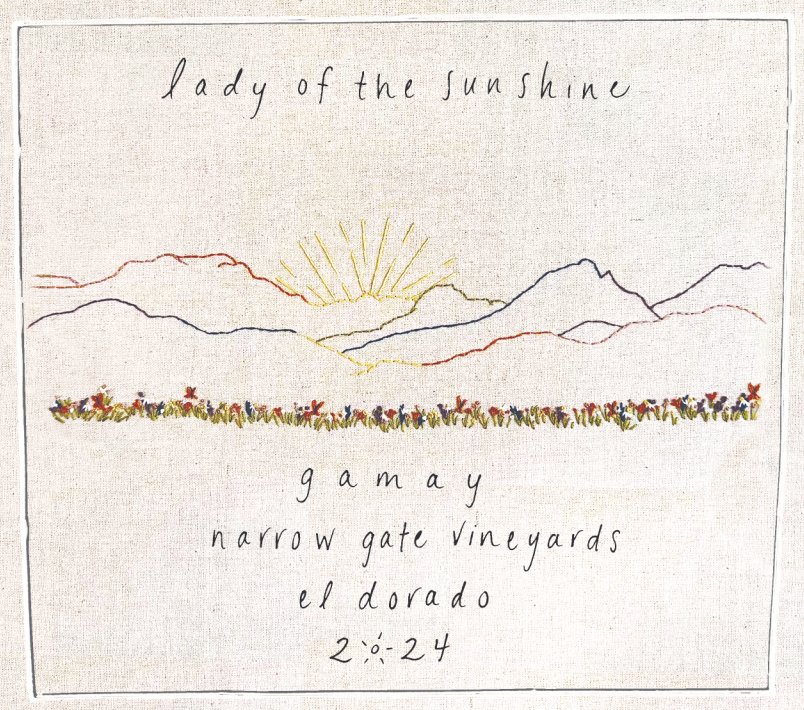 lady of the sunshine
gamay
narrow gate vineyards
el dorado
2024